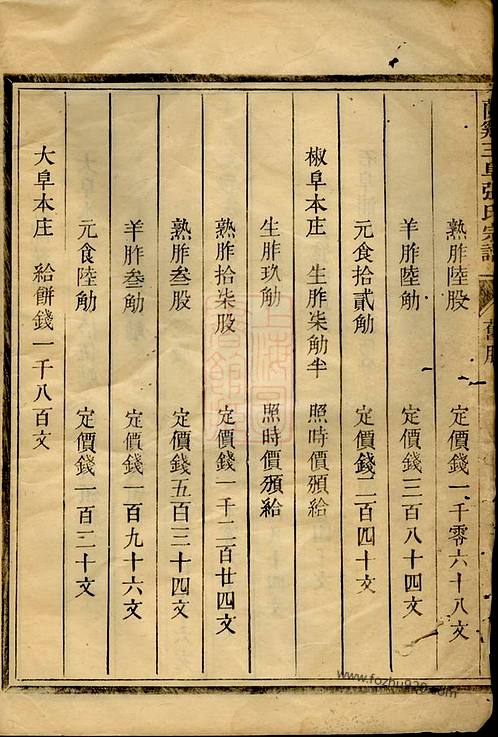 熟胙陸股 定價錢一千零六十八文
羊胙陸觔 定價錢三百八十四文
元食拾貳觔 定價錢二百四十文
椒阜本庄 生胙柒觔半 照時價頒給
生胙玖觔 照時價頒給
熟胙拾柒股 定價錢一千二百廿四文
熟胙叁股 定價錢五百三十四文
羊胙叁觔 定價錢一百九十六文
元食陸觔 定價錢一百二十文
大阜本庄 給餅錢一千八百文
張氏宗譜
上海圖書館
www.fozhu920.com